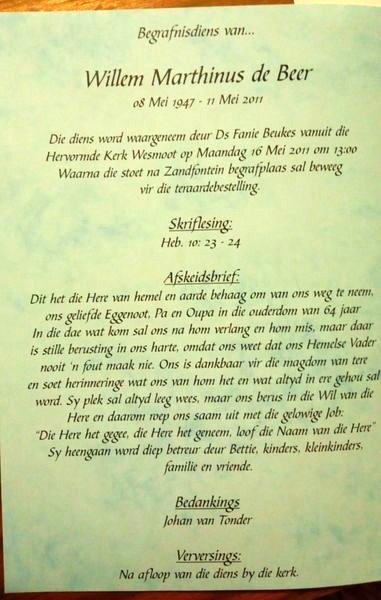 Begrafnisdiens van...
Willem Marthinus de Beer
08 Mei 1947 - 11 Mei 2011
Die diens word waargeneem deur Ds Fanie Beukes vanuit die
Hervormde Kerk Wesmoot op Maandag 16 Mei 2011 om 13:00
Waarna die stoet na Zandfontein begrafplaas sal beweeg
vir die teraardebestelling.
Skriflesing:
Heb. 10: 23 - 24
Afskeidsbrief:
Dit het die Here van hemel en aarde behaag om van ons weg te neem,
ons geliefde Eggenoot, Pa en Oupa in die ouderdom van 64 jaar
In die dae wat kom sal ons na hom verlang en hom mis, maar daar
is stille berusting in ons harte, omdat ons weet dat ons Hemelse Vader
nooit 'n fout maak nie. Ons is dankbaar vir die magdom van tere
en soet herinneringe wat ons van hom het en wat altyd in ere gehou sal
word. Sy plek sal altyd leeg wees, maar ons berus in die Wil van die
Here en daarom roep ons saam uit met die gelowige Job:
"Die Here het gegee, die Here het geneem, loof die Naam van die Here"
Sy heengaan word diep betreur deur Bettie, kinders, kleinkinders,
familie en vriende.
Bedankings
Johan van Tonder
Verversings:
Na afloop van die diens by die kerk.